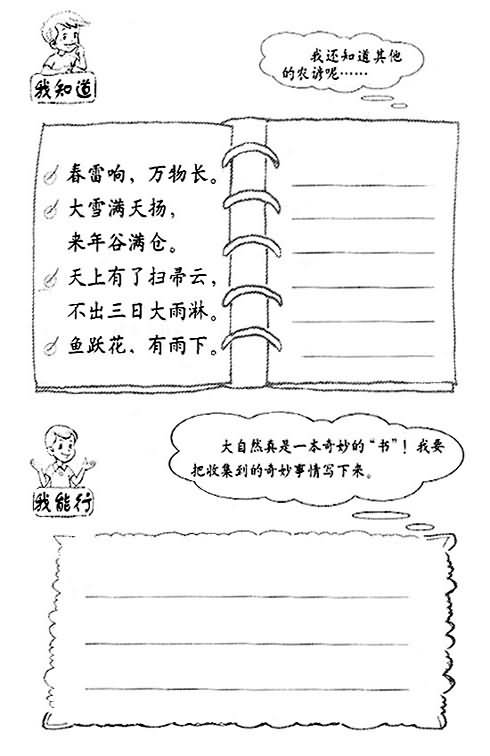 我还知道其他
的农谚呢……
我知道
春雷响，万物长。
大雪满天扬，
来年谷满仓。
天上有了扫帚云，
不出三日大雨淋。
鱼跃花，有雨下。
大自然真是一本奇妙的“书”！我要
把收集到的奇妙事情写下来。
我能行